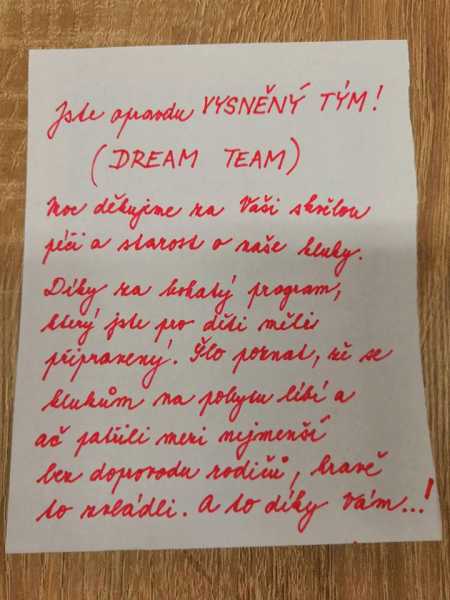 Jste opravdu VYSNĚNÝ TÝM!
(DREAM TEAM)
Moc děkujeme za Vaši skvělou
péči a starost o naše kluky.
Díky za bohatý program,
který jste pro děti měli
připravený. Šlo poznat, že se
klukům na pobytu líbí a
ač patřili mezi nejmenší
bez doprovodu rodičů, hravě
to zvládli. A to díky Vám...!